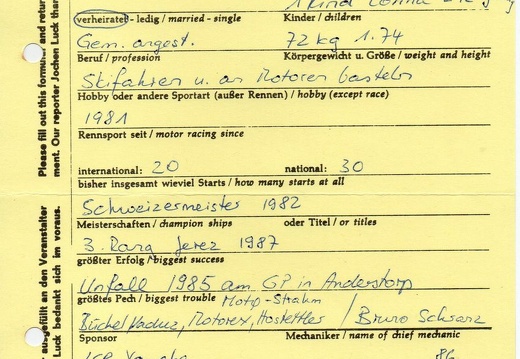 1 Kind
verheiratet - ledig / married - single Kinder / children
Gem. angest. 72 kg 1.74
Beruf / profession Körpergewicht u. Größe / weight and height
Skifahren u. an Motoren basteln
Hobby oder andere Sportart (außer Rennen) / hobby (except race)
1981
Rennsport seit / motor racing since
international: 20 national: 30
bisher insgesamt wieviel Starts / how many starts at all
Schweizermeister 1982
Meisterschaften / champion ships oder Titel / or titles
3. Rang Jerez 1987
größter Erfolg / biggest success
Unfall 1985 am GP in Anderstorp
größtes Pech / biggest trouble Moto-Strahm
Büchel Vaduz, Motorex, Hostettler / Bruno Schwarz
Sponsor Mechaniker / name of chief mechanic
86
Please fill out this formular and return
ment. Our reporter Jochen Luck than
ausgefüllt an den Veranstalter
Luck bedankt sich im voraus.